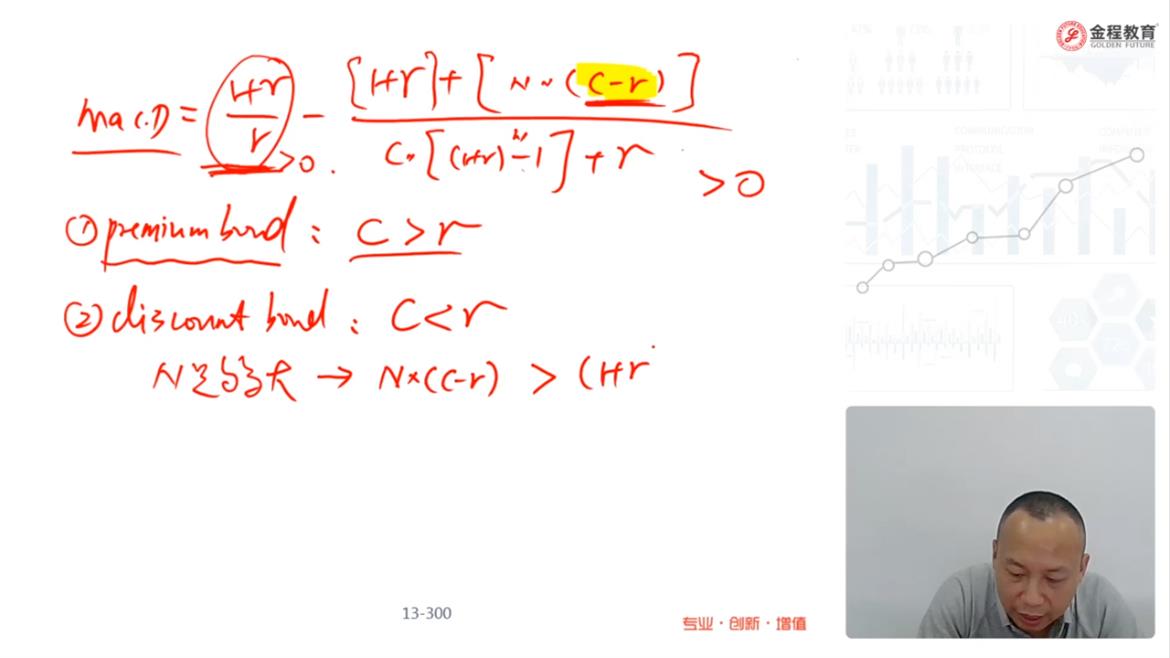 金程教育
GOLDEN FUTURE
mac.D = \frac{1+r}{r} - \frac{[1+r]+[N×(c-r)]}{c×[(1+r)^N-1]+r}
>0 .
>0
① premium bond : C>r
② discount bond : C<r
N足够大 → N×(C-r) > (1+r
13-300
专业·创新·增值